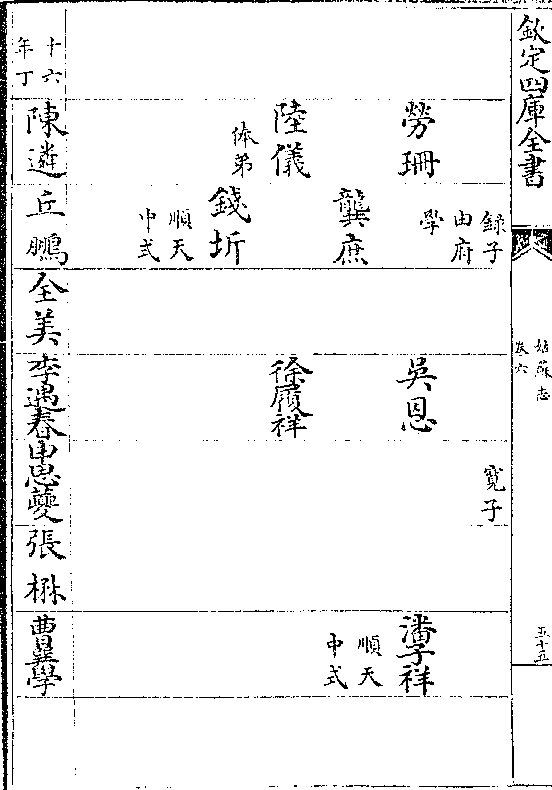 欽定四庫全書
姑蘇志
卷六
五十五
錄子
由府
學
寛子
勞珊
吳恩
潘子祥
順天
中式
龔庶
陸儀
体弟
徐履祥
錢圻
順天
中式
十六
年丁
陳遴
丘鵬
全美
李遇春
申思夔
張
曹巽學